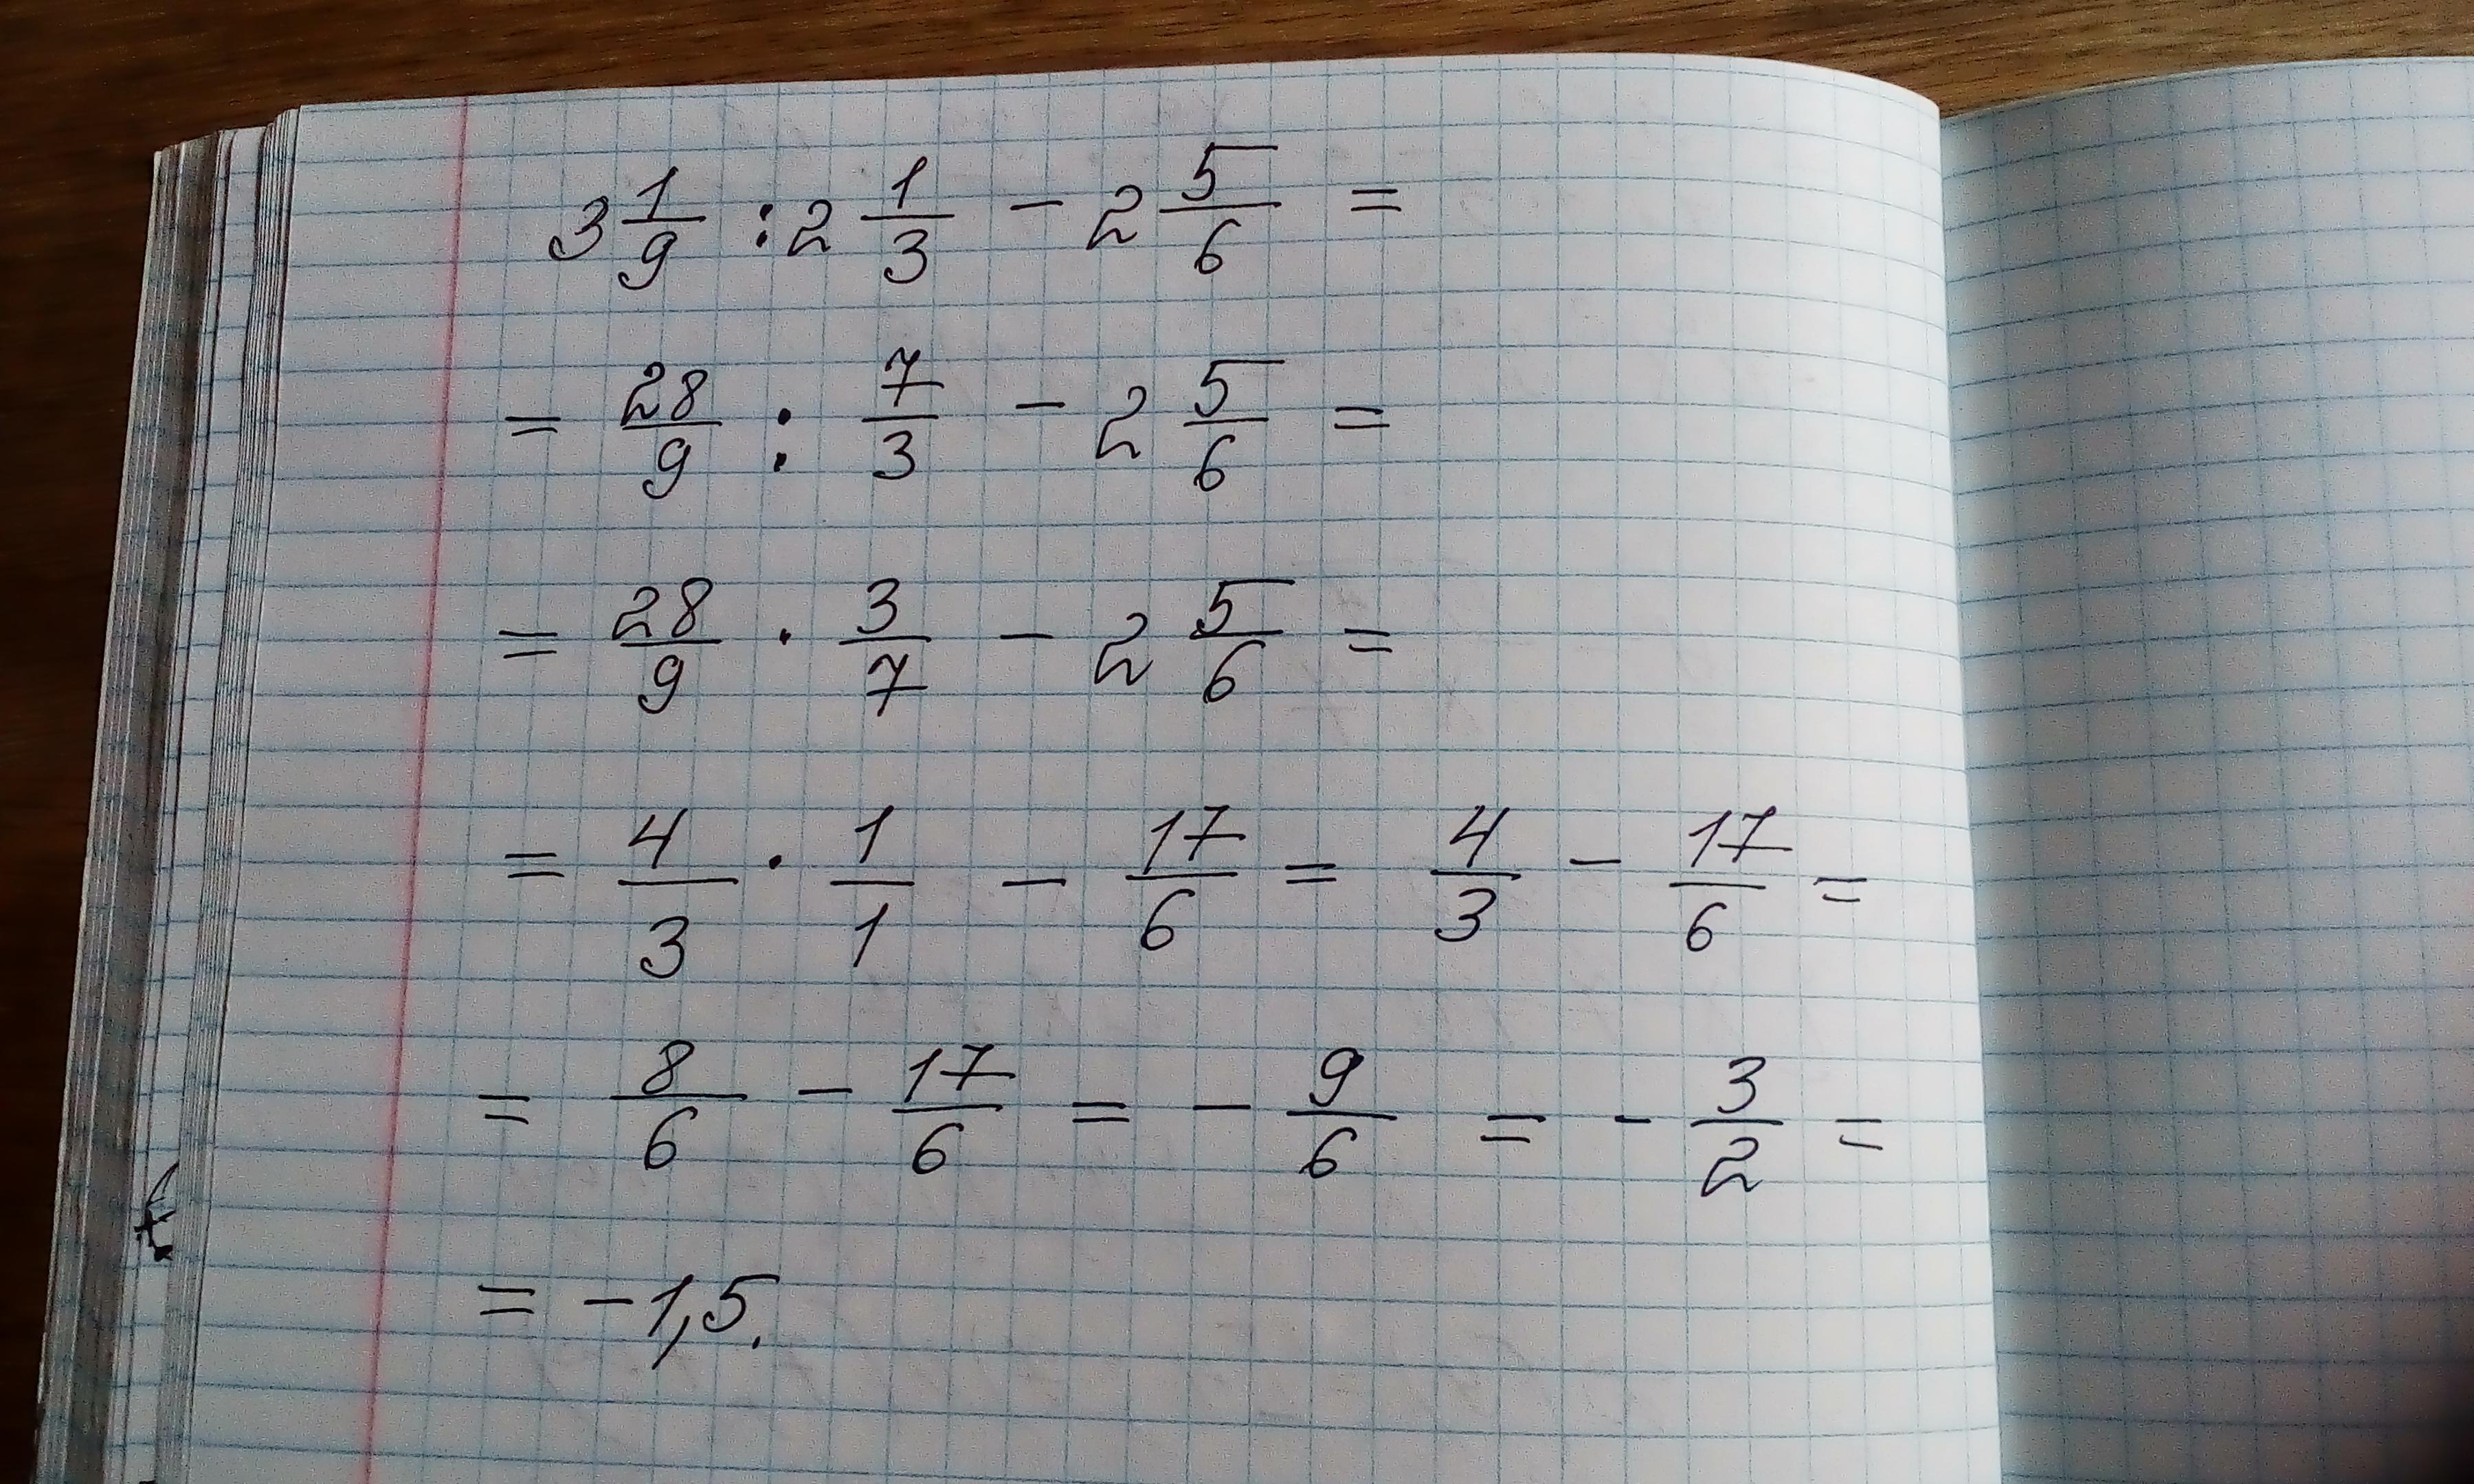 3 1/9 : 2 1/3 - 2 5/6 =
= 28/9 : 7/3 - 2 5/6 =
= 28/9 · 3/7 - 2 5/6 =
= 4/3 · 1/1 - 17/6 = 4/3 - 17/6 =
= 8/6 - 17/6 = - 9/6 = - 3/2 =
= -1,5.